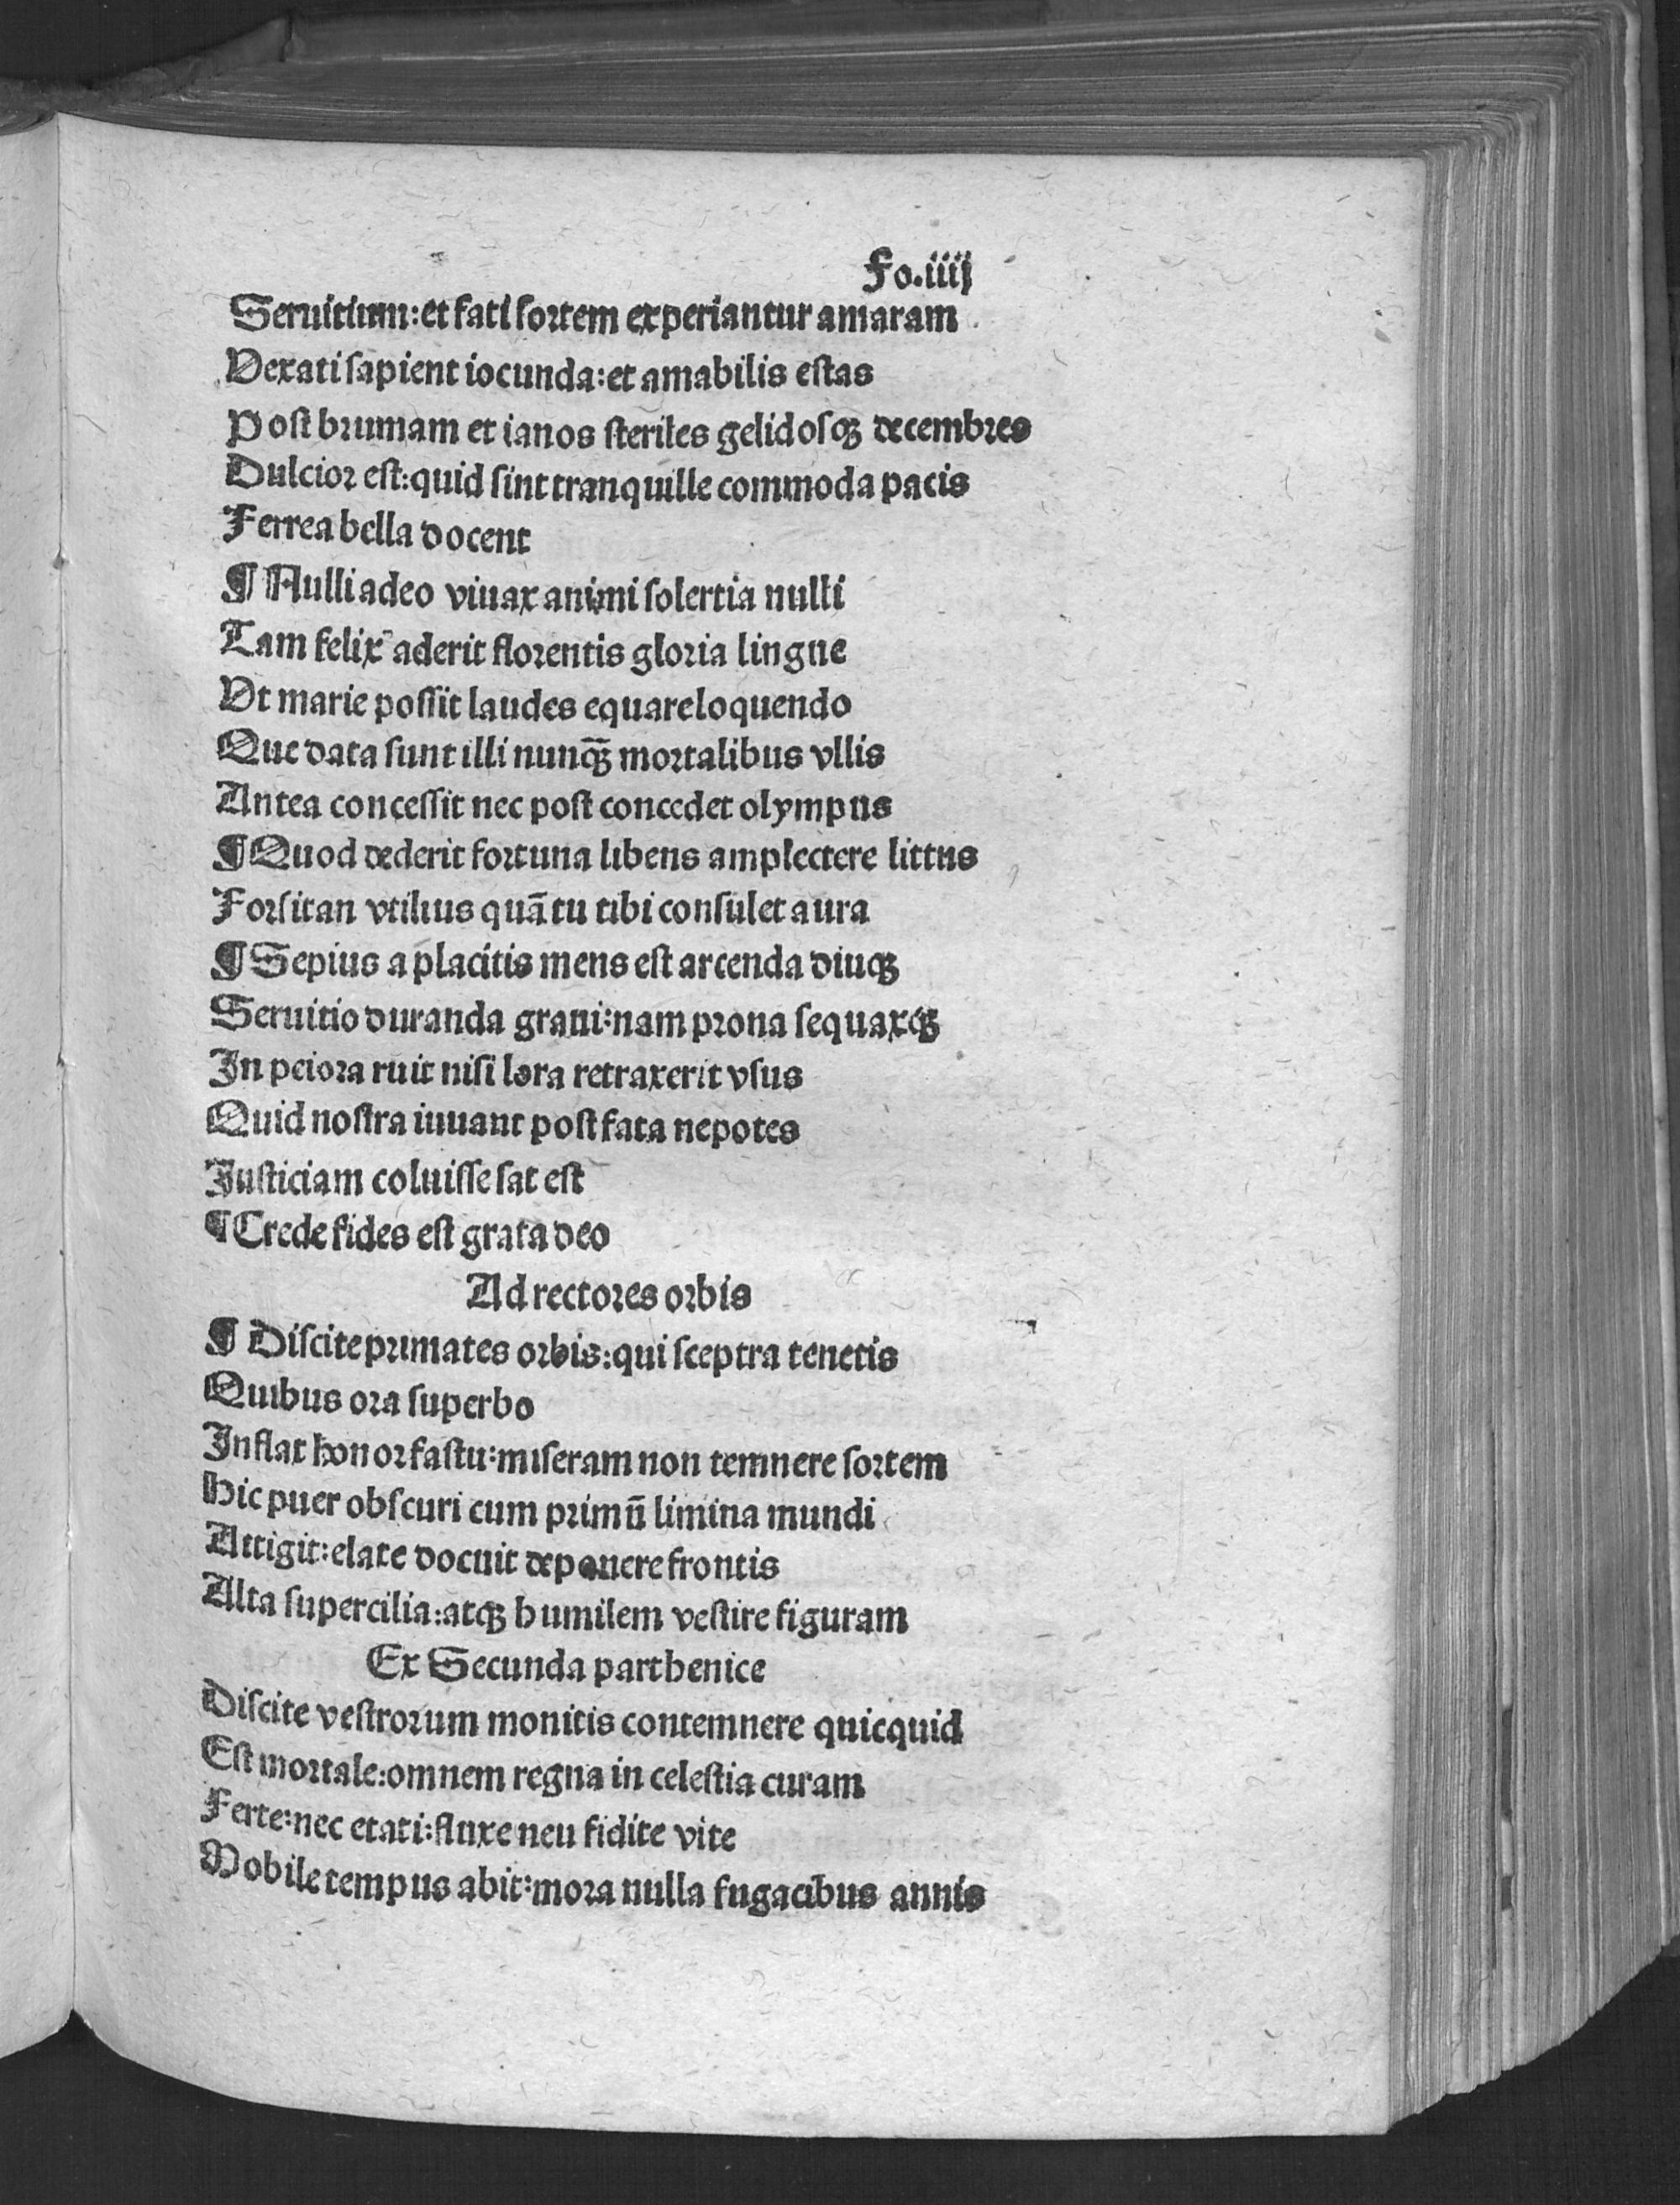 Fo.iiij
Seruitium:et fati ſortem experiantur amaram
Vexati ſapient iocunda:et amabilis eſtas
Poſt brumam et ianos ſteriles gelidoſqꝫ decembres
Dulcior eſt:quid ſint tranquille commoda pacis
Ferrea bella docent
¶ Nulli adeo viuax animi ſolertia nulli
Tam felix aderit florentis gloria lingue
Vt marie poſſit laudes equare loquendo
Que data ſunt illi nunqꝫ̃ mortalibus vllis
Antea conceſſit nec poſt concedet olympus
¶ Quod dederit fortuna libens amplectere littus
Forſitan vtilius quã tu tibi conſulet aura
¶ Sepius a placitis mens eſt arcenda diuqꝫ
Seruitio duranda graui:nam prona ſequaxqꝫ
In peiora ruit niſi lora retraxerit vſus
Quid noſtra iuuant poſt fata nepotes
Juſticiam coluiſſe ſat eſt
¶ Crede fides eſt grata deo
Ad rectores orbis
¶ Diſcite primates orbis:qui ſceptra tenetis
Quibus ora ſuperbo
Inflat honor faſtu:miſeram non temnere ſortem
Hic puer obſcuri cum primũ limina mundi
Attigit:elate docuit deponere frontis
Alta ſupercilia:atqꝫ humilem veſtire figuram
Ex Secunda parthenice
Diſcite veſtrorum monitis contemnere quicquid
Eſt mortale:omnem regna in celeſtia curam
Ferte:nec etati:fluxe neu fidite vite
Mobile tempus abit:mora nulla fugacibus annis